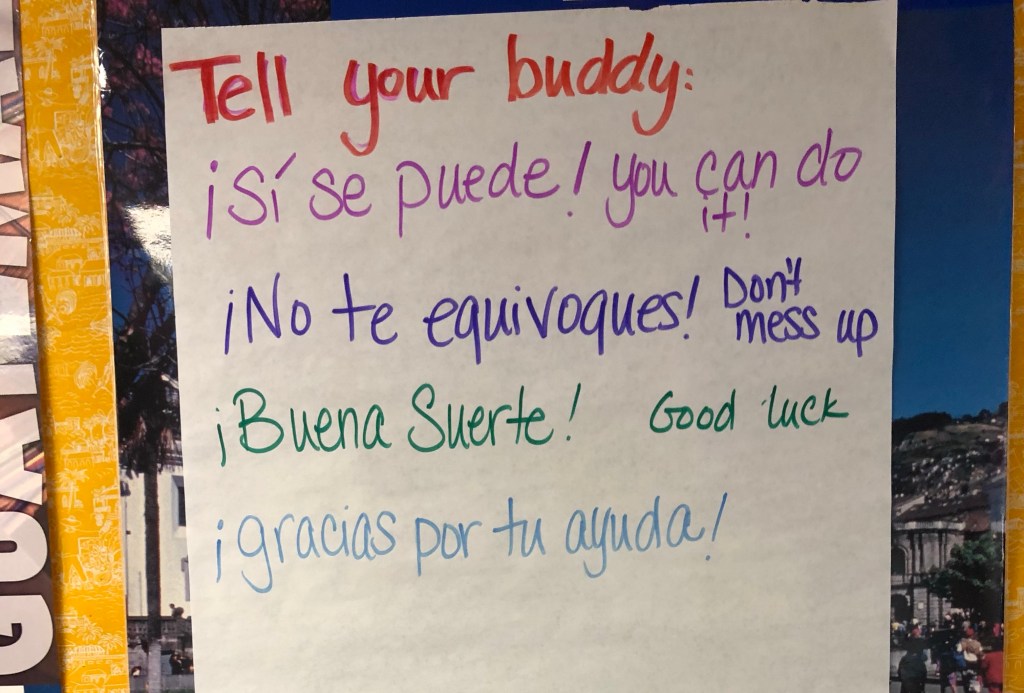 Tell your buddy:
¡Sí se puede! you can do it!
¡No te equivoques! Don't mess up
¡Buena Suerte! Good luck
¡gracias por tu ayuda!